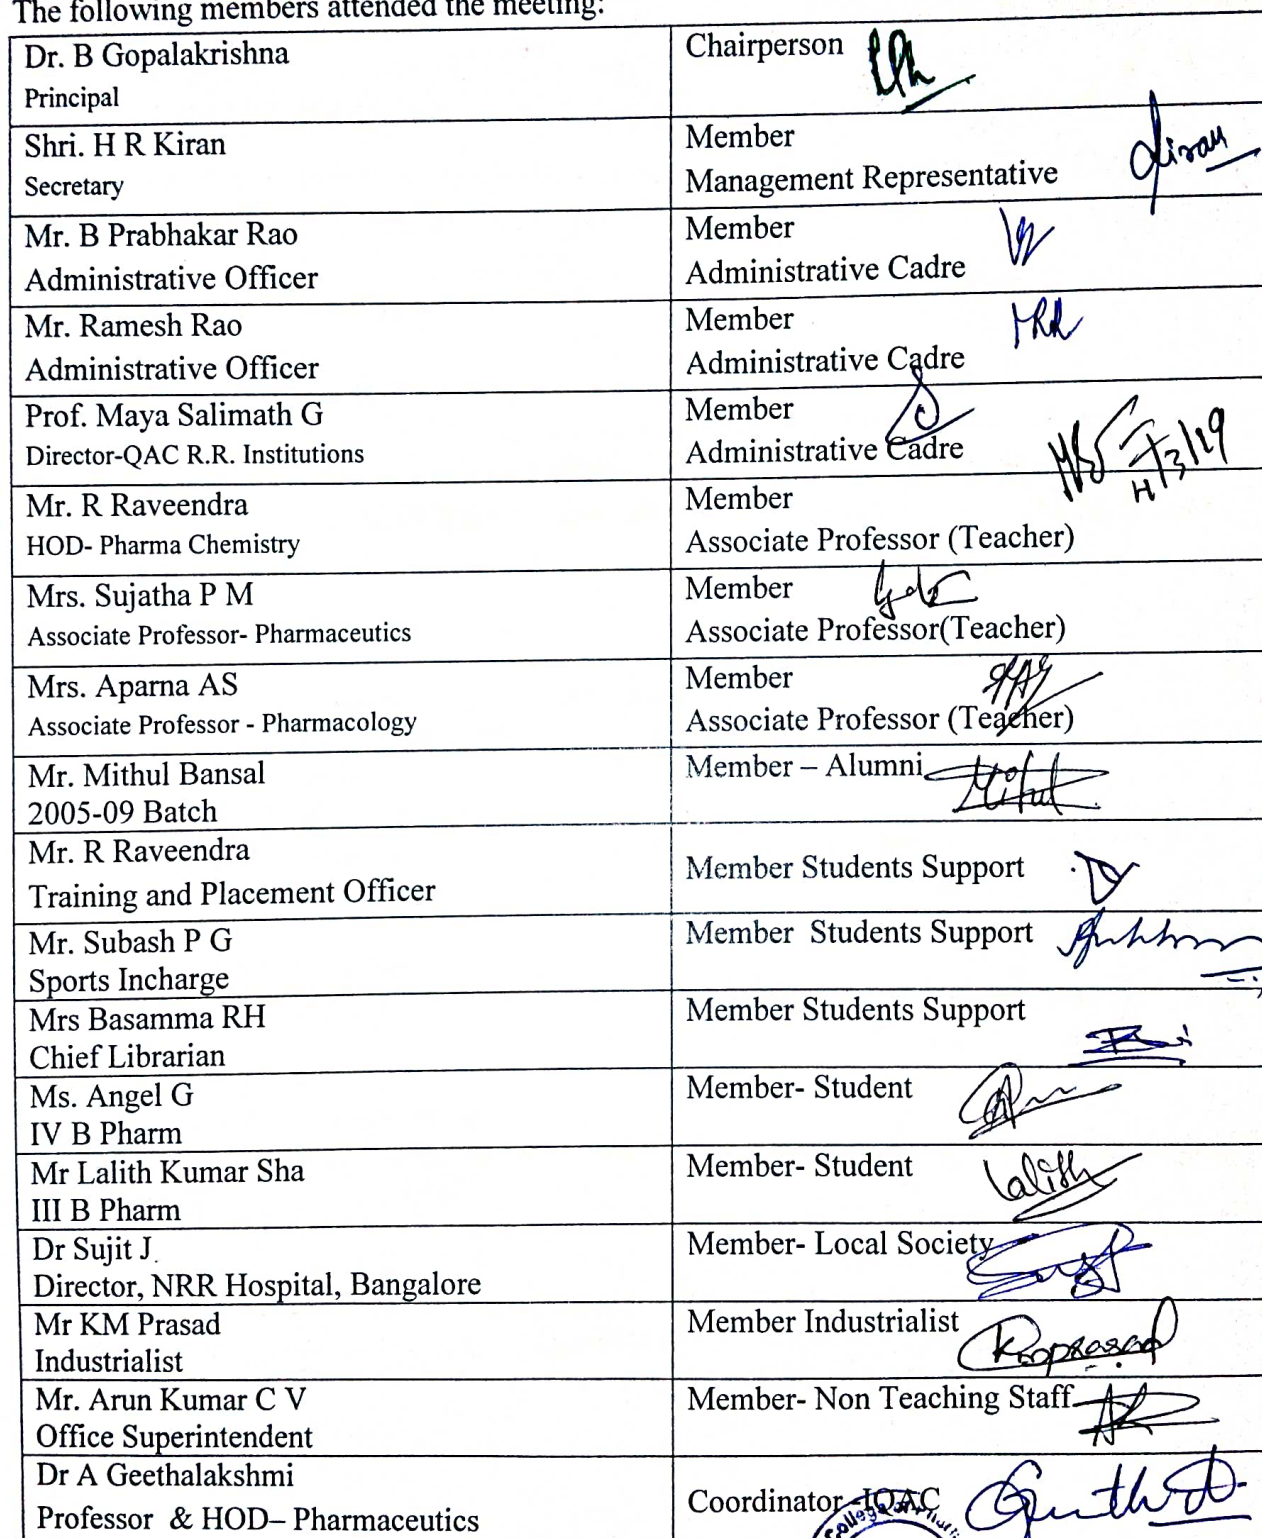 The following members attended the meeting:
Dr. B Gopalakrishna
Principal
Chairperson
Shri. H R Kiran
Secretary
Member
Management Representative
Kiran
Mr. B Prabhakar Rao
Administrative Officer
Member
Administrative Cadre
Mr. Ramesh Rao
Administrative Officer
Member
Administrative Cadre
Prof. Maya Salimath G
Director-QAC R.R. Institutions
Member
Administrative Cadre
Mr. R Raveendra
HOD- Pharma Chemistry
Member
Associate Professor (Teacher)
Mrs. Sujatha P M
Associate Professor- Pharmaceutics
Member
Associate Professor(Teacher)
Mrs. Aparna AS
Associate Professor - Pharmacology
Member
Associate Professor (Teacher)
Mr. Mithul Bansal
2005-09 Batch
Member – Alumni
Mr. R Raveendra
Training and Placement Officer
Member Students Support
Mr. Subash P G
Sports Incharge
Member Students Support
Mrs Basamma RH
Chief Librarian
Member Students Support
Ms. Angel G
IV B Pharm
Member- Student
Mr Lalith Kumar Sha
III B Pharm
Member- Student
Lalith
Dr Sujit J
Director, NRR Hospital, Bangalore
Member- Local Society
Mr KM Prasad
Industrialist
Member Industrialist
Kmprasad
Mr. Arun Kumar C V
Office Superintendent
Member- Non Teaching Staff
Dr A Geethalakshmi
Professor & HOD– Pharmaceutics
Coordinator -IQAC
College of